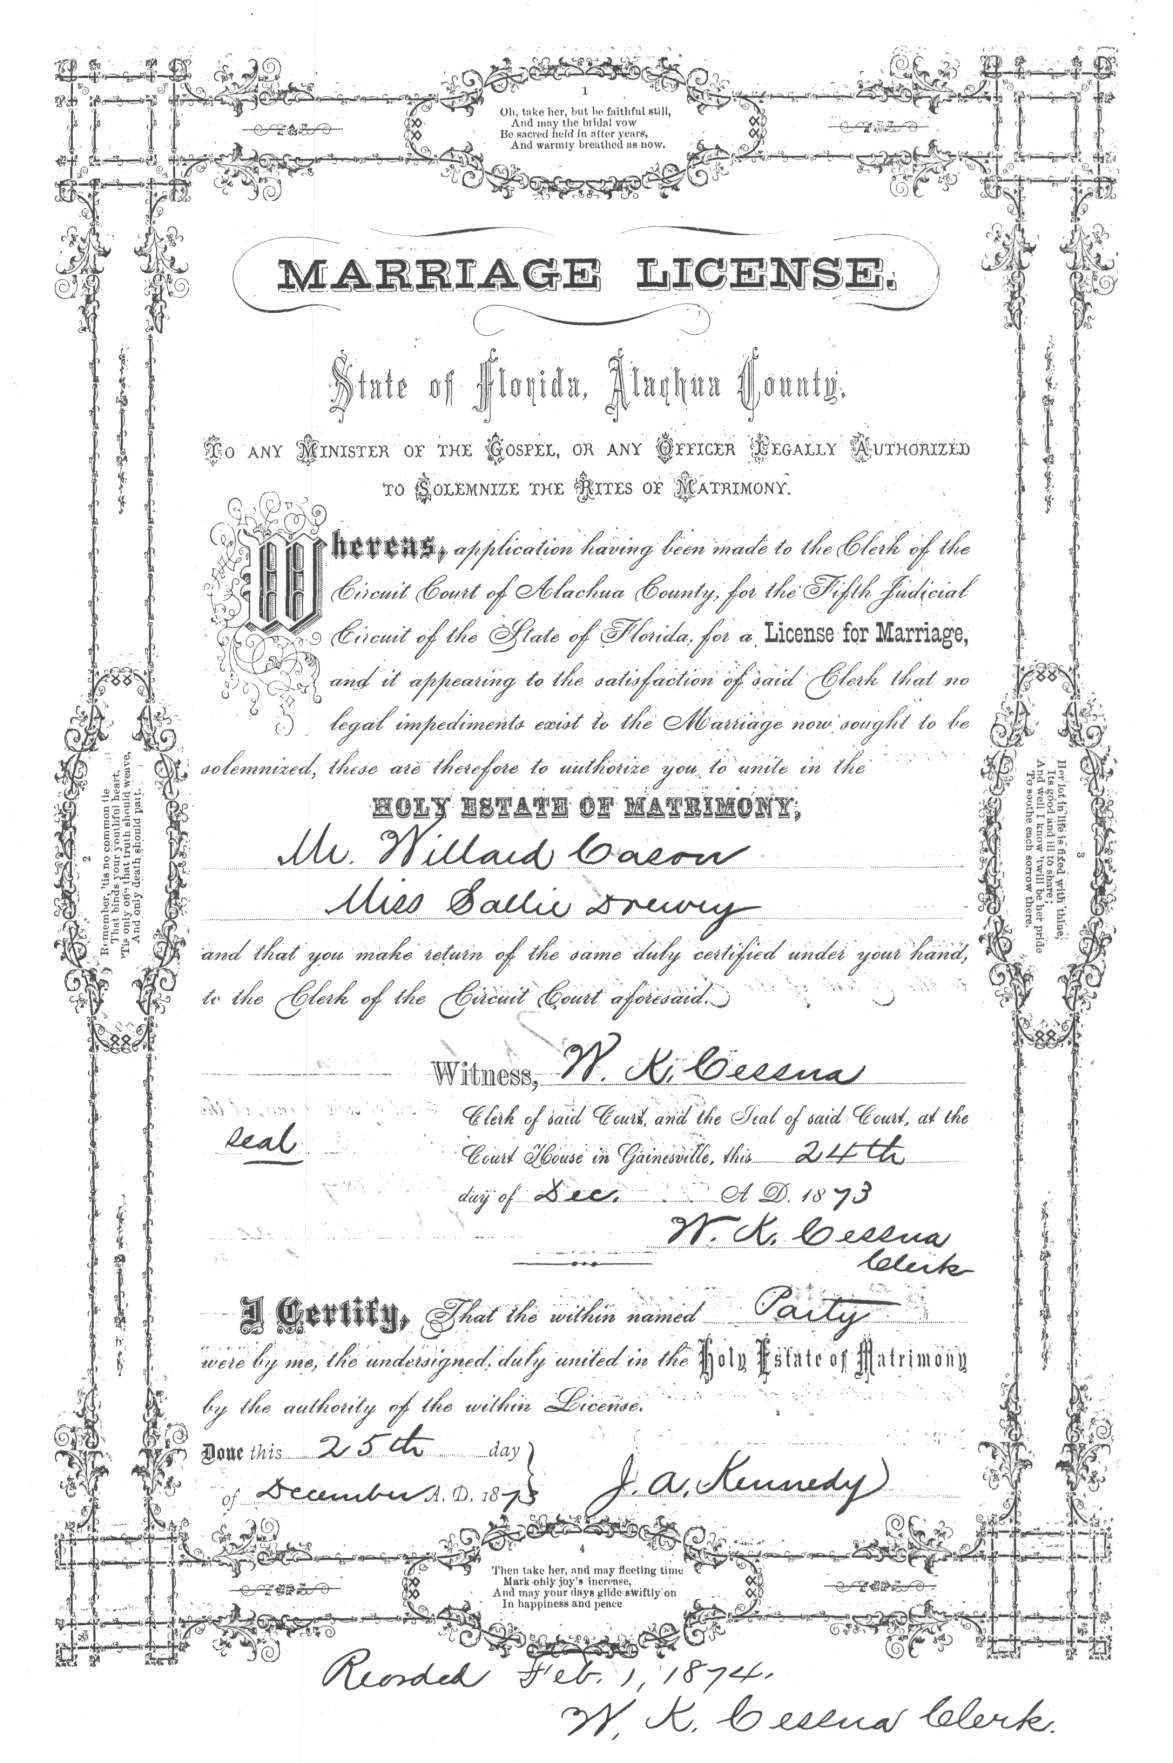 1
Oh, take her, but be faithful still,
And may the bridal vow
Be sacred held in after years,
And warmly breathed as now.
MARRIAGE LICENSE.
State of Florida, Alachua County.
TO ANY MINISTER OF THE GOSPEL, OR ANY OFFICER LEGALLY AUTHORIZED
TO SOLEMNIZE THE RITES OF MATRIMONY.
Whereas, application having been made to the Clerk of the
Circuit Court of Alachua County, for the Fifth Judicial
Circuit of the State of Florida, for a License for Marriage,
and it appearing to the satisfaction of said Clerk that no
legal impediments exist to the Marriage now sought to be
solemnized, these are therefore to authorize you to unite in the
HOLY ESTATE OF MATRIMONY;
Mr. Willard Cason
Miss Sallie Drewry
and that you make return of the same duly certified under your hand,
to the Clerk of the Circuit Court aforesaid.
2
Remember, 'tis no common tie
That binds your youthful heart,
'Tis only one that truth should weave,
And only death should part.
3
Her lot in life is fixed with thine;
Its good and ill to share;
And well I know 'twill be her pride
To soothe each sorrow there.
Witness, W. K. Cessna
Clerk of said Court, and the Seal of said Court, at the
seal
Court House in Gainesville, this 24th
day of Dec. A D. 1873
W. K. Cessna
Clerk
I Certify, That the within named Party
were by me, the undersigned, duly united in the Holy Estate of Matrimony
by the authority of the within License.
Done this 25th day
of December A. D. 1873
J. A. Kennedy
4
Then take her, and may fleeting time
Mark only joy's increase,
And may your days glide swiftly on
In happiness and peace
Recorded Feb. 1, 1874.
W. K. Cessna Clerk.